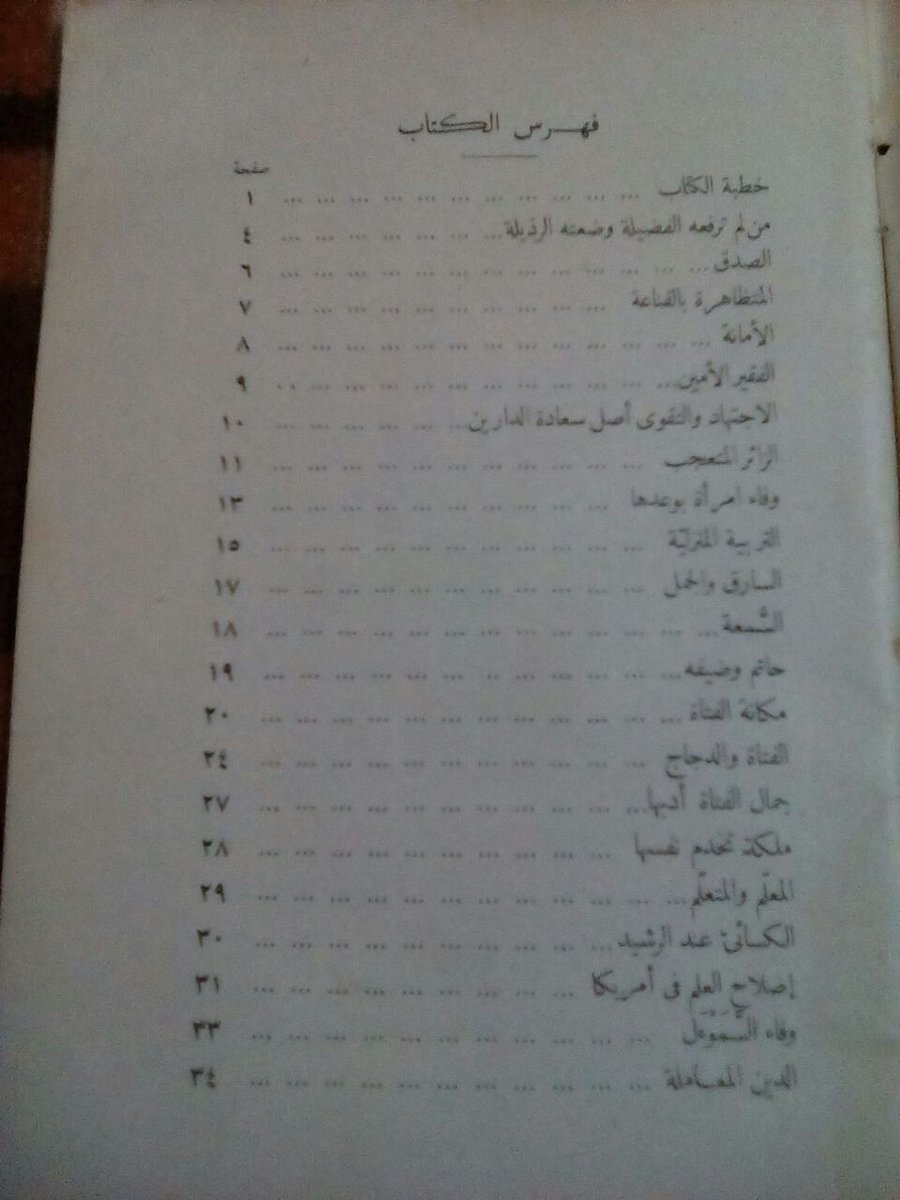 فهرس الكتاب
صفحة
خطبة الكتاب ... ... ... ... ... ... ... ... ... ... ... ١
من لم ترفعه الفضيلة وضعته الرذيلة ... ... ... ... ... ... ... ٤
الصدق ... ... ... ... ... ... ... ... ... ... ... ... ... ٦
المتظاهرة بالقناعة ... ... ... ... ... ... ... ... ... ... ٧
الأمانة ... ... ... ... ... ... ... ... ... ... ... ... ... ٨
الفقير الأمين ... ... ... ... ... ... ... ... ... ... ... ... ٩
الاجتهاد والتقوى أصل سعادة الدارين ... ... ... ... ... ... ١٠
الزائر المتعجب ... ... ... ... ... ... ... ... ... ... ... ١١
وفاء امرأة بوعدها ... ... ... ... ... ... ... ... ... ... ١٣
التربية المنزليّة ... ... ... ... ... ... ... ... ... ... ... ١٥
السارق والحمل ... ... ... ... ... ... ... ... ... ... ... ١٧
السُّمعة ... ... ... ... ... ... ... ... ... ... ... ... ... ١٨
حاتم وضيفه ... ... ... ... ... ... ... ... ... ... ... ... ١٩
مكانة الفتاة ... ... ... ... ... ... ... ... ... ... ... ... ٢٠
الفتاة والدجاج ... ... ... ... ... ... ... ... ... ... ... ٢٤
جمال الفتاة أدبها ... ... ... ... ... ... ... ... ... ... ... ٢٧
ملكة تخدم نفسها ... ... ... ... ... ... ... ... ... ... ٢٨
المعلّم والمتعلّم ... ... ... ... ... ... ... ... ... ... ... ... ٢٩
الكسائىّ عند الرشيد ... ... ... ... ... ... ... ... ... ... ٣٠
إصلاح العلم فى أمريكا ... ... ... ... ... ... ... ... ... ٣١
وفاء السَّمَوْءَل ... ... ... ... ... ... ... ... ... ... ... ٣٣
الدين المعاملة ... ... ... ... ... ... ... ... ... ... ... ٣٤